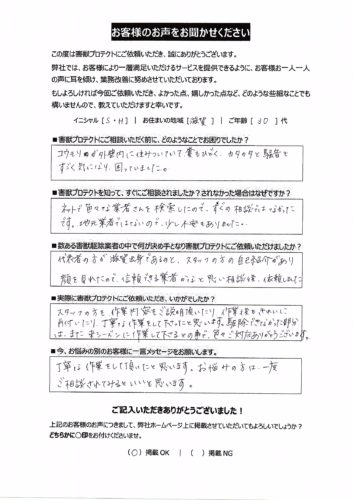 お客様のお声をお聞かせください
この度は害獣プロテクトにご依頼いただき、誠にありがとうございます。
弊社では、お客様により一層満足いただけるサービスを提供できるように、お客様お一人一人
の声に耳を傾け、業務改善に努めさせていただいております。
もしよろしければ今回ご依頼いただき、よかった点、嬉しかった点など、どのような些細なことでも
構いませんので、教えていただけますと幸いです。
イニシャル [S・H] | お住まいの地域 [滋賀] | ご年齢 [30] 代
■害獣プロテクトにご相談いただく前に、どのようなことでお困りでしたか?
コウモリが外壁内に住みついていて、糞もひどく、カタカタと騒音も
すごく気になり、困っていました。
■害獣プロテクトを知って、すぐご相談されましたか?されなかった場合はなぜですか?
ネットで色々な業者さんを検索したので、すぐの相談ではなかった
です。地元業者ではないので、少し不安もありました。
■数ある害獣駆除業者の中で何が決め手となり害獣プロテクトに依頼いただけましたか?
代表者の方が滋賀出身であるのと、スタッフの方の自己紹介があり
顔を見れたので、信頼できる業者かなと思い相談後、依頼しました
■実際に害獣プロテクトにご依頼いただき、いかがでしたか?
スタッフの方も作業内容をご説明頂いたり、作業後もきれいに
片付いたり、丁寧な作業をして下さったと思います。駆除できなかった部分
は、また来シーズンに作業して下さるとの事で、色々ご対応ありがとうございます。
■今、お悩みの別のお客様に一言メッセージをお願いします。
丁寧な作業をして頂いたと思います。お悩みの方は一度
ご相談されてみるといいと思います。
ご記入いただきありがとうございました!
上記のお客様のお声につきまして、弊社ホームページ上に掲載させていただいてもよろしいでしょうか?
どちらかに○印をお付けくださいませ。
(○) 掲載OK | ( ) 掲載NG